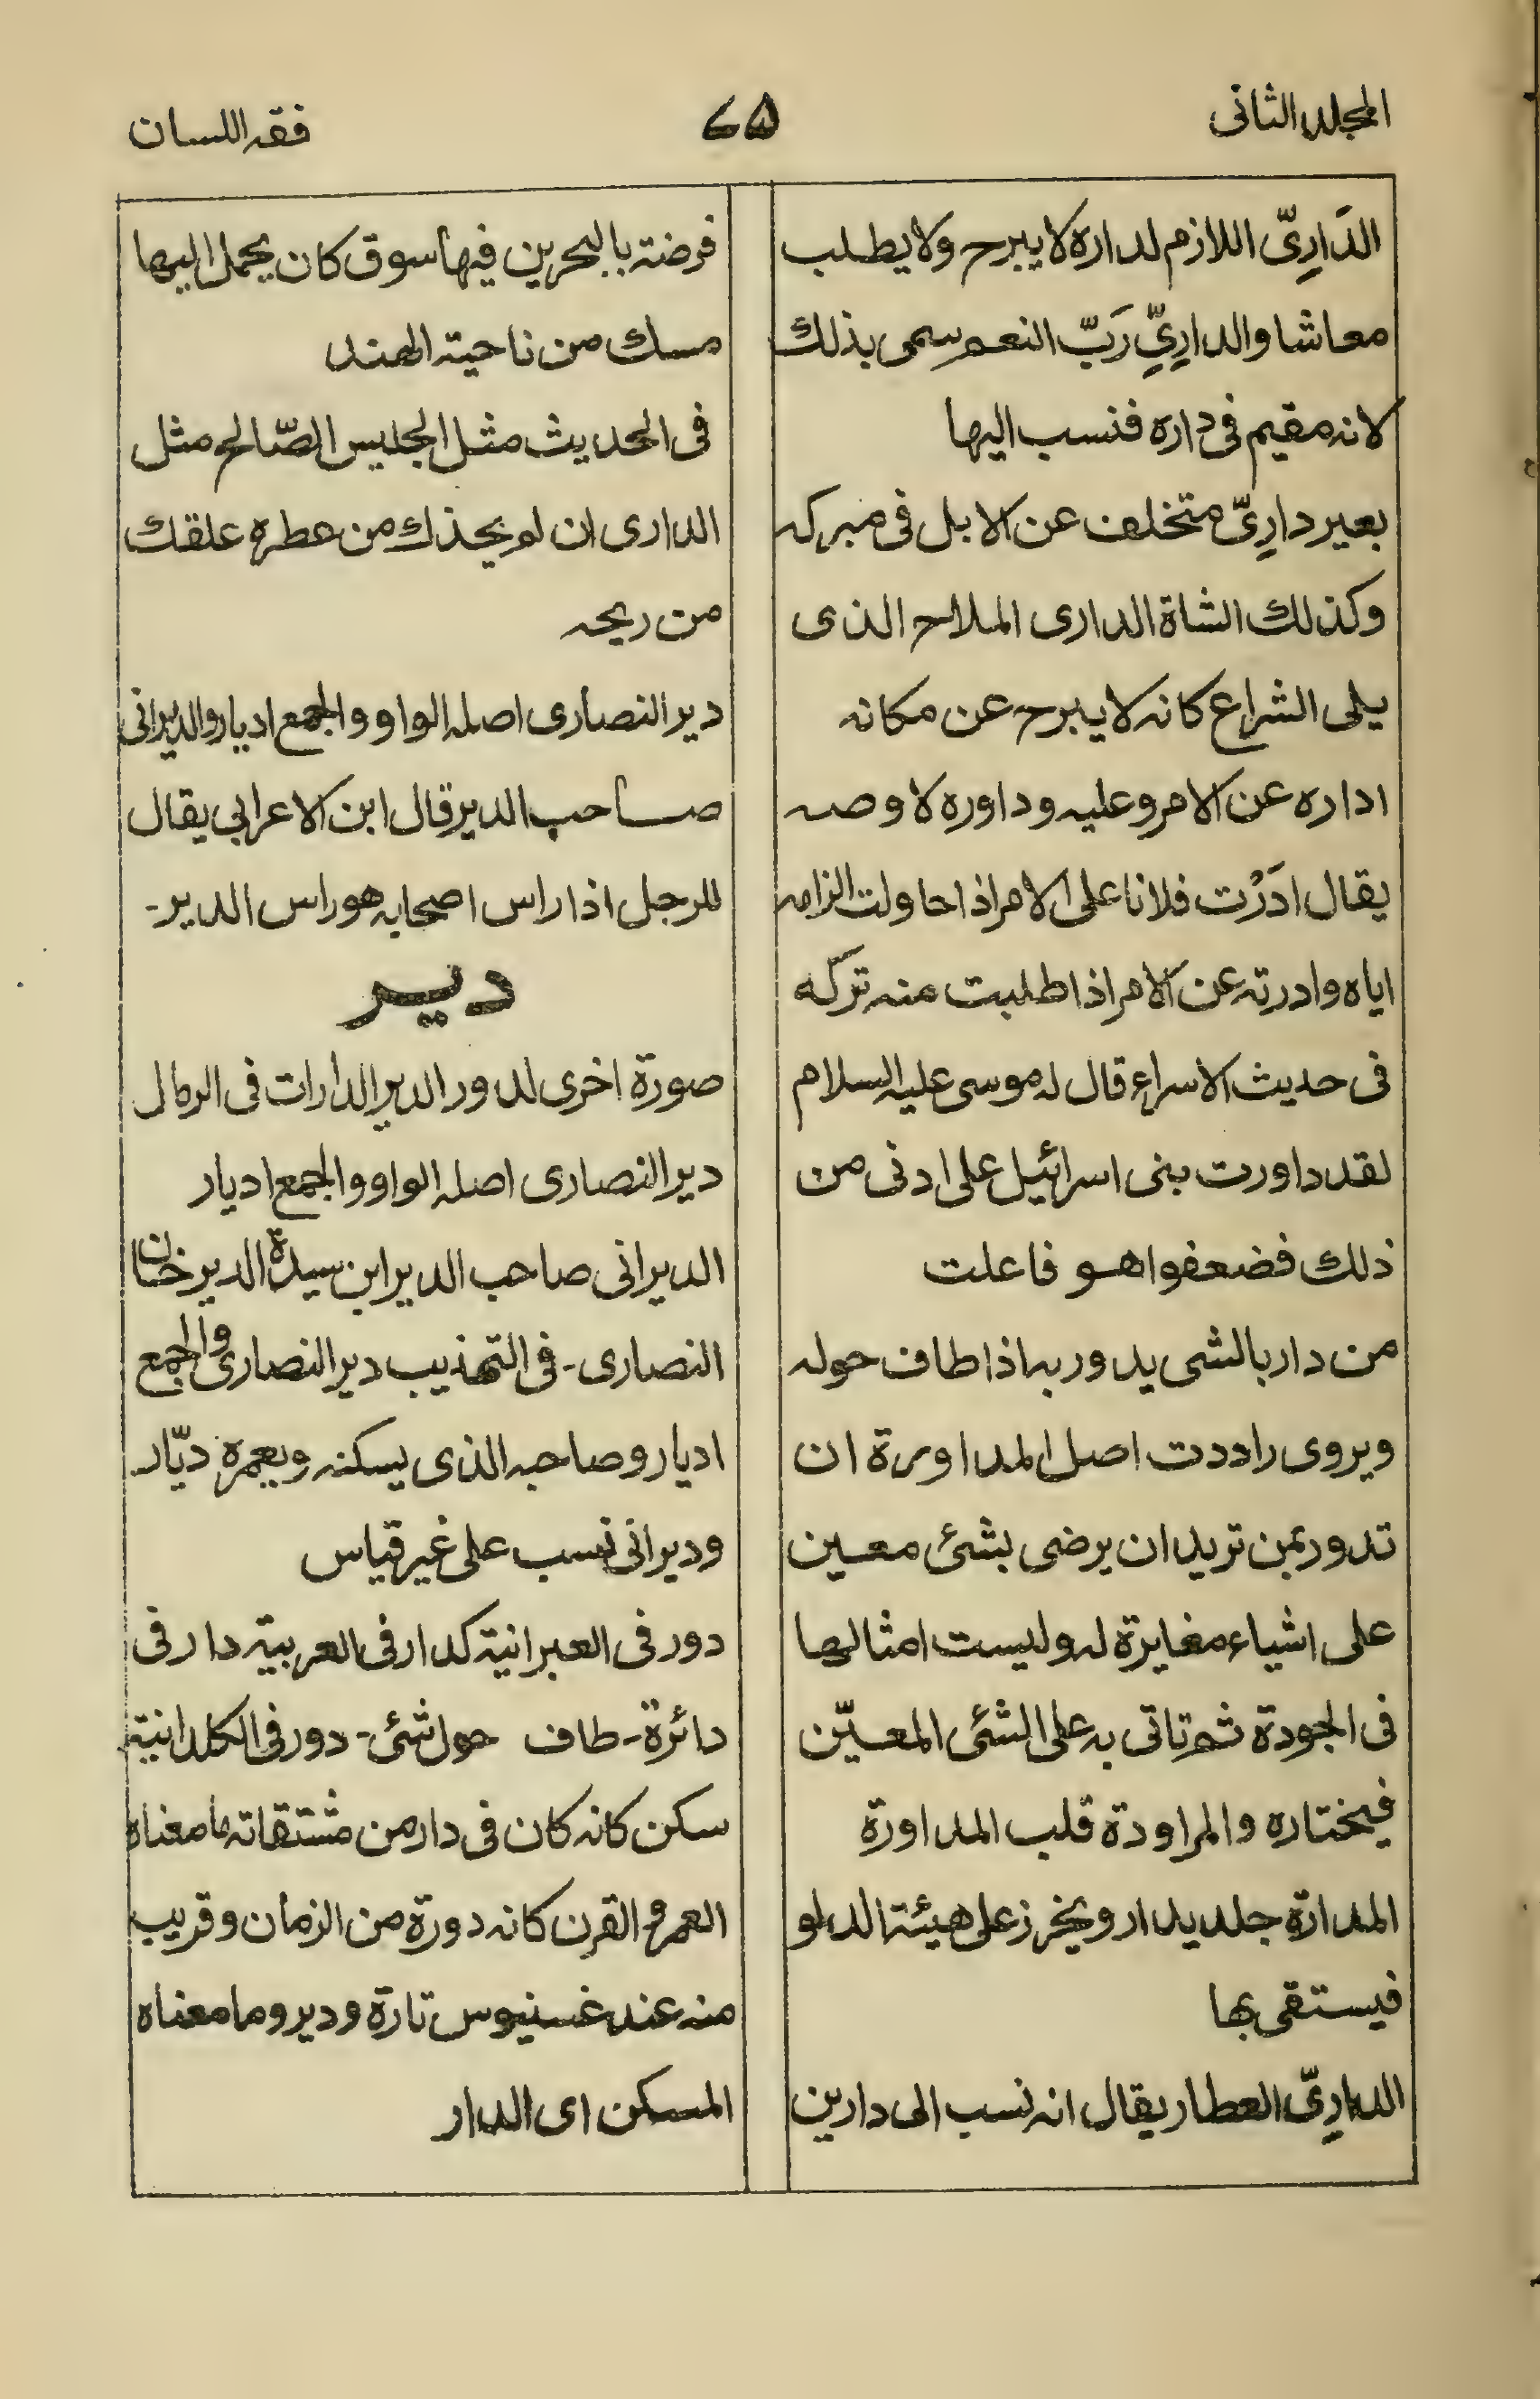 المجلد الثانى
۷۵
فقه اللسان
الدَارِىّ اللازم لداره لا يبرح ولا يطلب
معاشا والدارِىِّ رَبّ النعم سمى بذلك
لانه مقيم فى داره فنسب اليها
بعير دارِىّ متخلف عن الابل فى مبركه
وكذلك الشاة الدارى الملاح الذى
يلى الشراع كانه لا يبرح عن مكانه
اداره عن الامر وعليه وداوره لاوصه
يقال ادَرْت فلانا على الامر اذا حاولت الزامه
اياه وادرته عن الامر اذا طلبت منه تركه
فى حديث الاسراء قال له موسى عليه السلام
لقد داورت بنى اسرائيل على ادنى من
ذلك فضعفوا هو فاعلت
من دار بالشى يدور به اذا طاف حوله
ويروى راددت اصل المداورة ان
تدور بمن تريد ان يرضى بشئ معين
على اشياء مغايرة له وليست امثالها
فى الجودة ثم تاتى به على الشئ المعيّن
فيختاره والمراودة قلب المداورة
المدارة جلد يدار ويخرز على هيئة الدلو
فيستقى بها
الدارِىّ العطار يقال انه نسب الى دارين
فرضة بالبحرين فيها سوق كان يحمل اليها
مسك من ناحية الهند
فى الحديث مثل الجليس الصّالح مثل
الدارى ان لم يحذك من عطره علقك
من ريحه
دير النصارى اصله الواو والجمع اديار والديرانى
صاحب الدير قال ابن الاعرابى يقال
للرجل اذا راس اصحابه هو راس الدير-
دير
صورة اخرى لدور الدير الدارات فى الرمال
دير النصارى اصله الواو والجمع اديار
الديرانى صاحب الدير ابن سيدة الدير خان
النصارى- فى التهذيب دير النصارى والجمع
اديار وصاحبه الذى يسكنه ويعمره ديّار
وديرانى نسب على غير قياس
دور فى العبرانية كدار فى العربية دار فى
دائرة- طاف حول شئ- دور فى الكلدانية
سكن كانه كان فى دار من مشتقاته ما معناه
العمر والقرن كانه دورة من الزمان وقريب
منه عند غسنيوس تارة ودير وما معناه
المسكن اى الدار